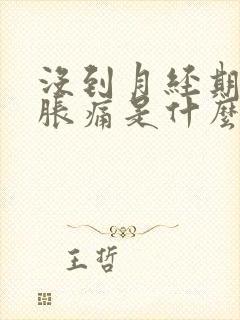 沒到月経期
脹痛是什麼
王哲